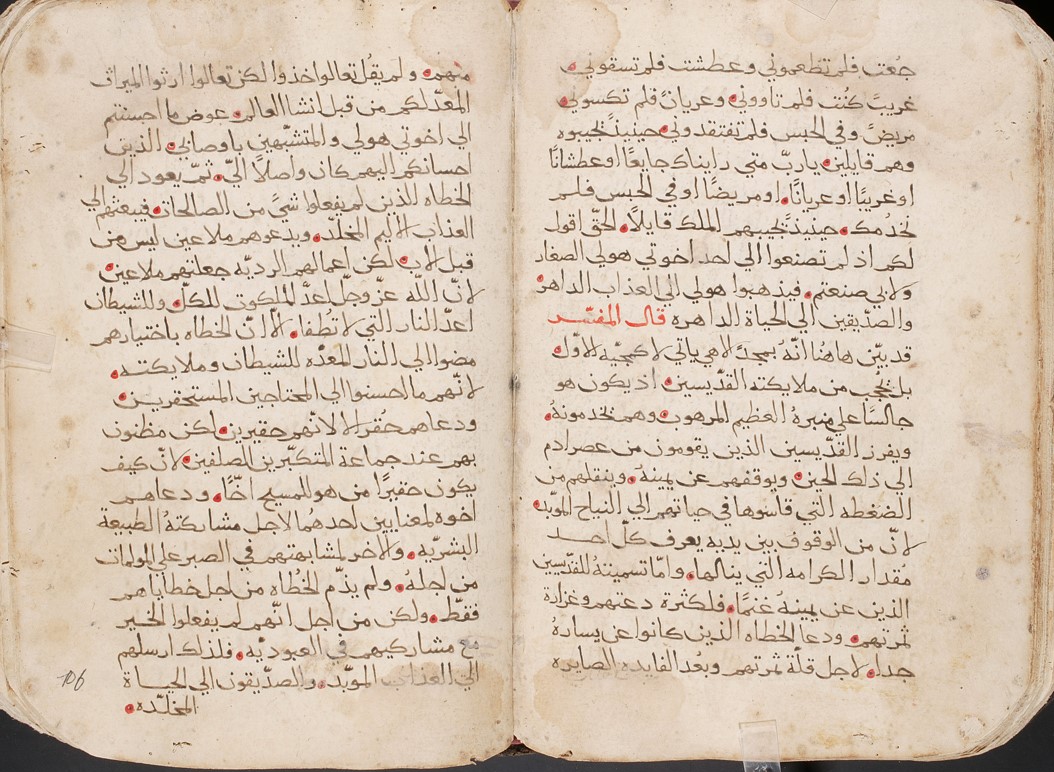 جُعت فلم تطعموني وعطشت فلم تسقوني
غريبً كُنت فلم تاووني وعريانً فلم تكسوني
مريضً وفي الحبس فلم تفتقدوني حينيذً يجيبوه
وهم قايلين يا ربّ متي رايناك جايعًا او عطشانًا
او غريبًا او عريانًا او مريضًا او في الحبس فلم
نخدمك حينيذً يجيبهم الملك قايلًا الحقّ اقول
لكم اذ لم تصنعوا الي احد اخوتي هولي الصغار
ولا بي صنعتم فيذهبوا هولي الي العذاب الداهر
والصدّيقين الي الحياة الداهره قال المفسّر
قد بيّن هاهُنا انّهُ بمجدً لاهي ياتي لا كمجيّه لاوّل
بل بجمي من ملايكته القدّيسين اذ يكون هو
جالسًا علي منبرهُ العظيم المرهوب وهم يخدمونهُ
ويفرز القدّيسين الذين يقومون من عصر ادم
الي ذلك الحين ويوقفهم عن يمينهُ وينقلهم من
الضغطه التي قاسوها في حياتهم الي النياح الموبّد
لانّ من الوقوف بين يديه يعرف كلّ احد
مقدار الكرامه التي ينالها وامّا تسميتهُ للقدّيسين
الذين عن يمينهُ غنمًا فلكثرة دعتهم وغزارة
ثمرتهم ودعا الخطاه الذين كانوا عن يسارهُ
جدا لاجل قلّة ثمرتهم وبُعد الفايده الصايره
منهم ولم يقُل تعالوا خذوا لكن تعالوا ارثوا الميراث
المعدّ لكم من قبل انشا العالم عوض ما احسنتم
الي اخوتي هولي والمتشبّهين باوصابي الذين
احسانكم اليهم كان واصلًا اليّ ثمّ يعود الي
الخطاه الذين لم يفعلوا شيً من الصالحات فيبعثهم الي
العذاب لاليم المخلّد ويدعوهم ملاعين ليس من
قبل لاب لكن اعمالهم الرديّه جعلتهم ملاعين
لانّ اللّه عزّ وجلّ اعدّ الملكوت للكلّ وللشيطان
اعدّ النار التي لا تُطفا لّا انّ الخطاه باختيارهم
مضوا الي النار المعدّه للشيطان وملايكته
لانّهم ما احسنوا الي المحتاجين المستحقرين
ودعاهم حُقرا لا لانّهم حقيرين لكن مظنون
بهم عند جماعة المتكبّرين الصلفين لانّ كيف
يكون حقيرًا من هو للمسيح اخًا ودعاهم
اخوه لمعنايين احدهُما لاجل مشاركتهُ الطبيعة
البشريّه ولاخر لمشابهتهم في الصبر علي المولمات
من اجلهُ ولم يذّم الخطاه من اجل خطاياهم
فقطّ ولكن من اجل انّهم لم يفعلوا الخير
مع مشاركيهم في العبوديّه فلذلك ارسلهم
الي العذاب الموبّد والصدّيقون الي الحياة
المخلّده
106